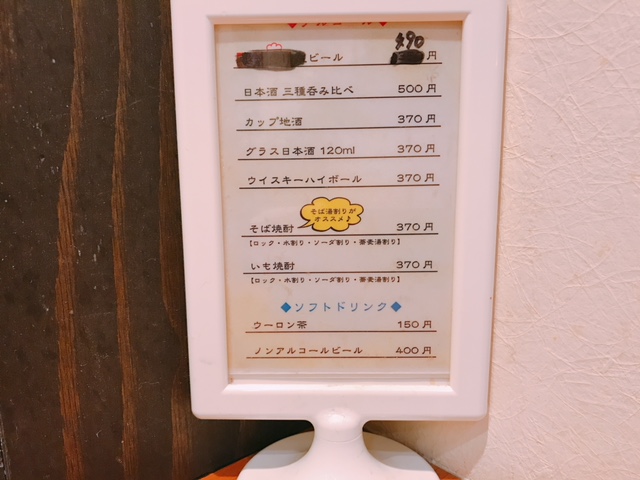 ◆アルコール◆
ビール 490円
日本酒 三種呑み比べ 500円
カップ地酒 370円
グラス日本酒 120ml 370円
ウイスキーハイボール 370円
そば湯割りが
オススメ♪
そば焼酎 370円
【ロック・水割り・ソーダ割り・蕎麦湯割り】
いも焼酎 370円
【ロック・水割り・ソーダ割り・蕎麦湯割り】
◆ソフトドリンク◆
ウーロン茶 150円
ノンアルコールビール 400円